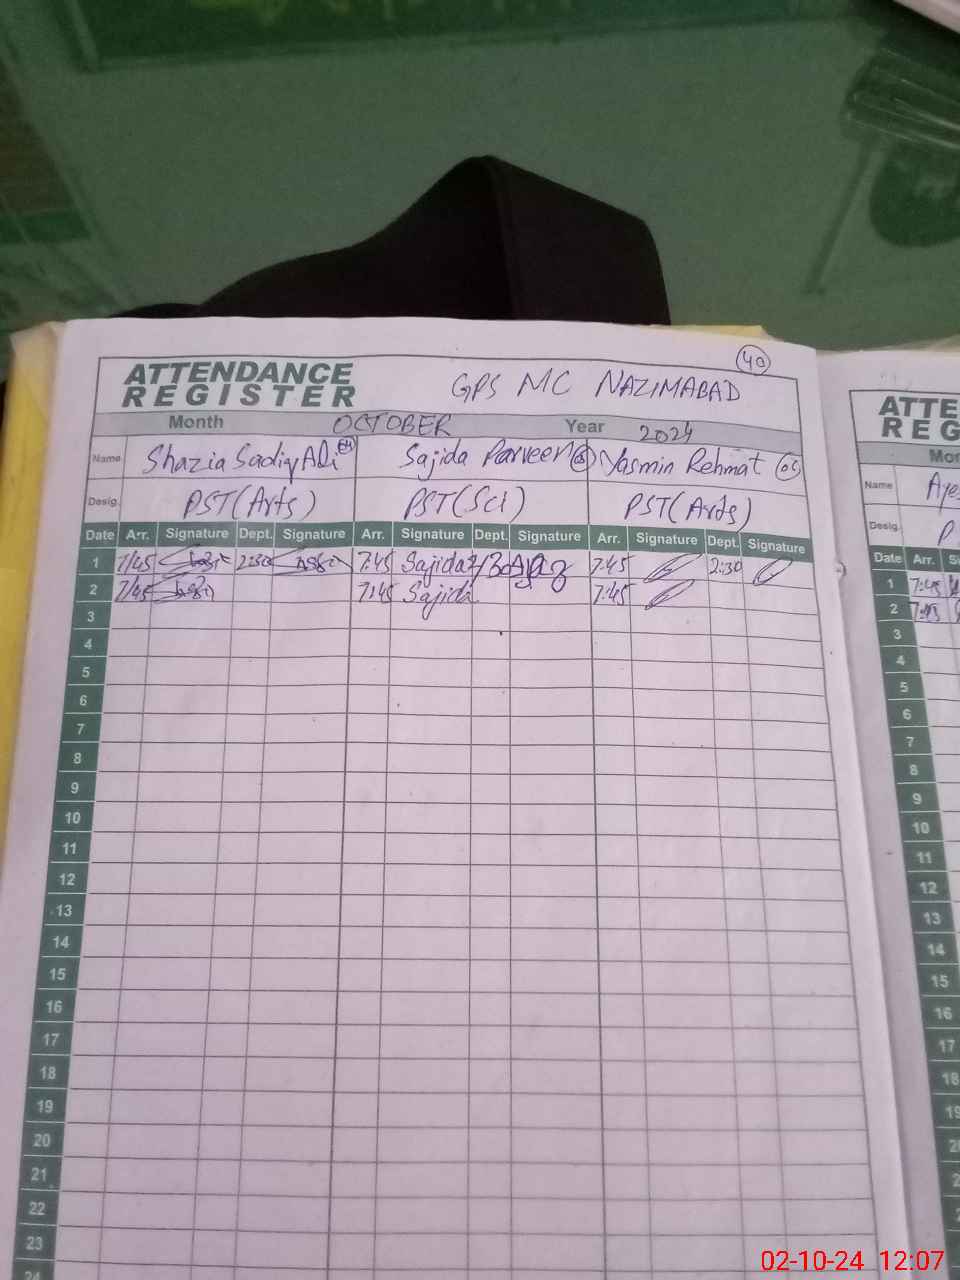 49
ATTENDANCE REGISTER GPS MC NAZIMABAD
Month OCTOBER Year 2024
Name Shazia Sadiq Ali Sajida Parveen Yasmin Rehmat
Desig. PST(Arts) PST(Sci) PST(Arts)
Date Arr. Signature Dept. Signature Arr. Signature Dept. Signature Arr. Signature Dept. Signature
1 7/45 2:30 7:45 Sajida 7:45 2:30
2 7/45 7:45 Sajida 7:45
3
4
5
6
7
8
9
10
11
12
13
14
15
16
17
18
19
20
21
22
23
24
ATTE
REG
Mon
Name
Desig. P
Date Arr. Si
1 7:45
2
3
4
5
6
7
8
9
10
11
12
13
14
15
16
17
18
19
02-10-24 12:07